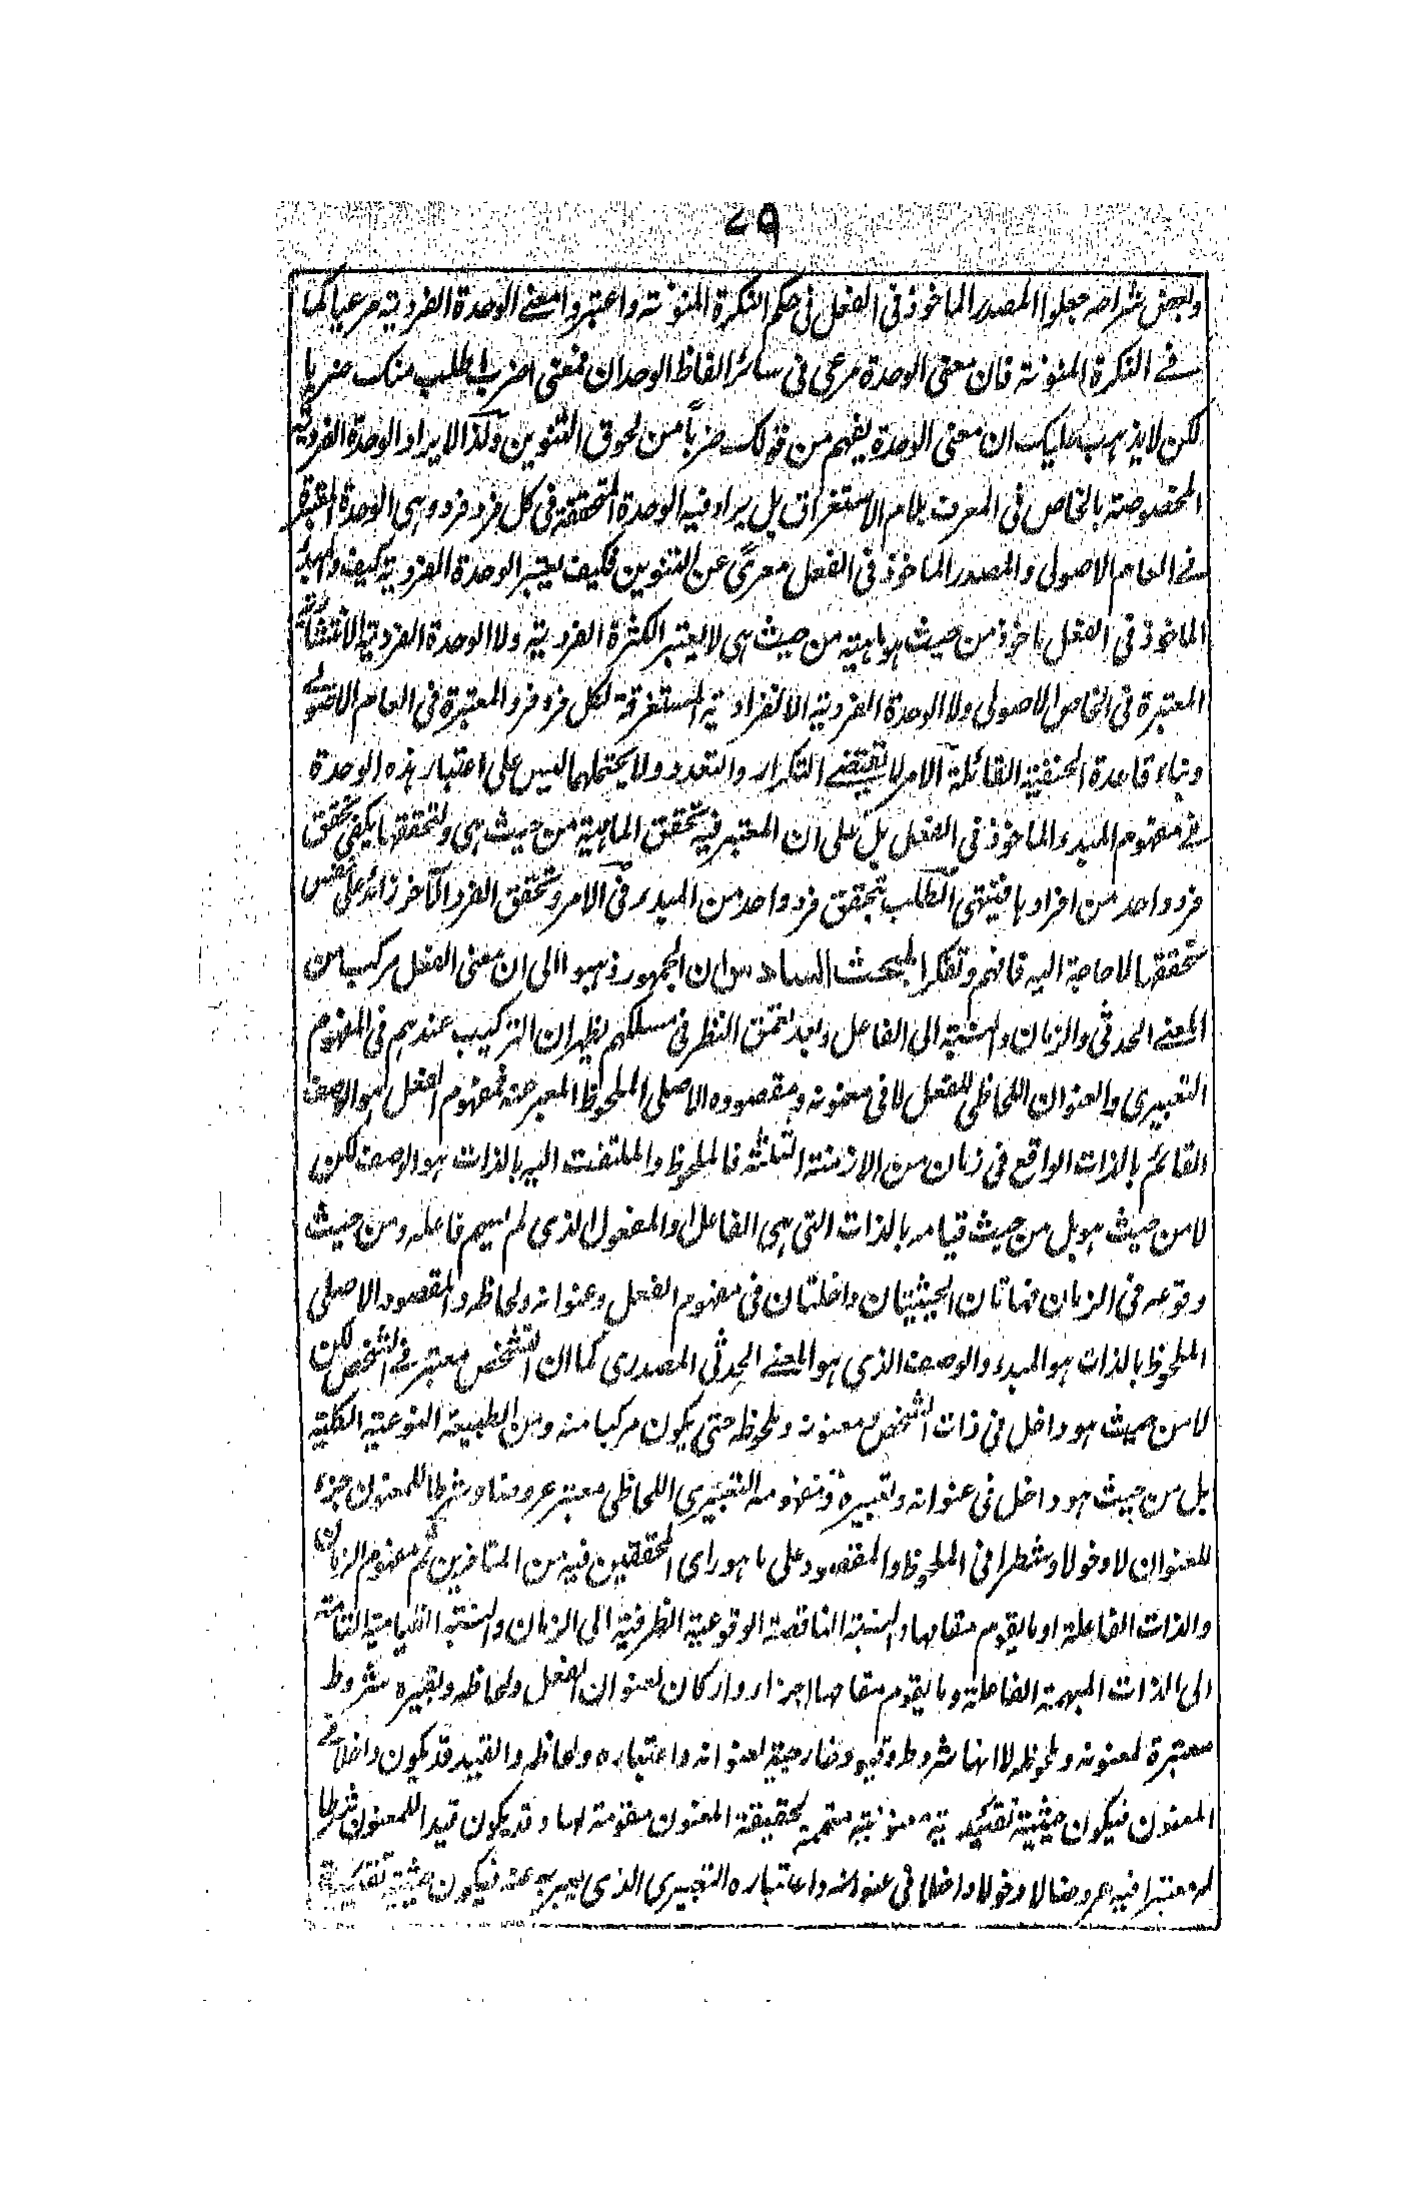 ٧٩
وبعض شراحه جعلوا المصدر الماخوذ في الفعل في حكم النكرة المنونة واعتبروا معنى الوحدة الفردية مرعيا كما
في النكرة المنونة فان معنى الوحدة مرعى في سائر الفاظ الوحدان فمعنى اضرب اطلب منك ضربا
لكن لا يذهب عليك ان معنى الوحدة يفهم من قولك ضرباً من لحوق التنوين ولذا لا يراد الوحدة الفردية
المخصوصة بالخاص في المعرف بلام الاستغراق بل يراد فيه الوحدة المتحققة في كل فرد فرد وهي الوحدة المعتبرة
في العام الاصولى والمصدر الماخوذ في الفعل معرىً عن التنوين فكيف يعتبر الوحدة الفردية كيف والمبدء
الماخوذ في الفعل ماخوذ من حيث هو ماهية من حيث هي لا يعتبر الكثرة الفردية ولا الوحدة الفردية الانتشارية
المعتبرة في الخاص الاصولى ولا الوحدة الفردية الانفرادية المستغرقة لكل فرد فرد المعتبرة في العام الاصولى
وبناء قاعدة الحنفية القائلة الامر لا يقتضى التكرار والتعدد ولا يحتملهما ليس على اعتبار هذه الوحدة
في مفهوم المبدء الماخوذ في الفعل بل على ان المعتبر فيه تحقق الماهية من حيث هي ولتحققها يكفى تحقق
فرد واحد من افرادها فينتهى الطلب بتحقق فرد واحد من المبدء في الامر وتحقق الفرد الآخر زائد على نفس
تحققها لا حاجة اليه فافهم وتفكر المبحث السادس ان الجمهور ذهبوا الى ان معنى الفعل مركب من
المعنى الحدثى والزمان والنسبة الى الفاعل وبعد تعمق النظر في مسلكهم يظهر ان التركيب عندهم في المفهوم
التعبيرى والعنوان اللحاظى للفعل لا في معنونه ومقصوده الاصلى الملحوظ المعبر عنه فمفهوم الفعل هو الوصف
القائم بالذات الواقع في زمان من الازمنة الثلثة فالملحوظ والملتفت اليه بالذات هو الوصف لكن
لا من حيث هو بل من حيث قيامه بالذات التى هي الفاعل او المفعول الذى لم يسم فاعله ومن حيث
وقوعه في الزمان فهاتان الحيثيتان داخلتان في مفهوم الفعل وعنوانه ولحاظه والمقصود الاصلى
الملحوظ بالذات هو المبدء والوصف الذى هو المعنى الحدثى المصدرى كما ان التشخص معتبر في الشخص لكن
لا من حيث هو داخل في ذات الشخص ومعنونه وملحوظه حتى يكون مركبا منه ومن الطبيعة النوعية الكلية
بل من حيث هو داخل في عنوانه وتعبيره ومفهومه التعبيرى اللحاظى معتبر عروضا وشرطا للمعنون جزء
للعنوان لا دخولا وشطرا في الملحوظ والمقصود على ما هو راى المحققين فيه من المتاخرين ثم مفهوم الزمان
والذات الفاعلة او ما يقوم مقامها والنسبة الناقصة الوقوعية الظرفية الى الزمان والنسبة القيامية التامة
الى الذات المبهمة الفاعلة وما يقوم مقامها اجزاء واركان لعنوان الفعل ولحاظه وتعبيره شروط
معتبرة لمعنونه وملحوظه لا انها شروط وقيود خارجية لعنوانه واعتباره ولحاظه والقيد قد يكون داخلا في
المعنون فيكون حيثية تقييدية معنونية متممة لحقيقة المعنون مقومة لها وقد يكون قيدا للمعنون شرطا
له معتبرا فيه عروضا لا دخولا داخلا في عنوانه واعتباره التعبيرى الذى يعبر به عنه فيكون حيثية تقييدية